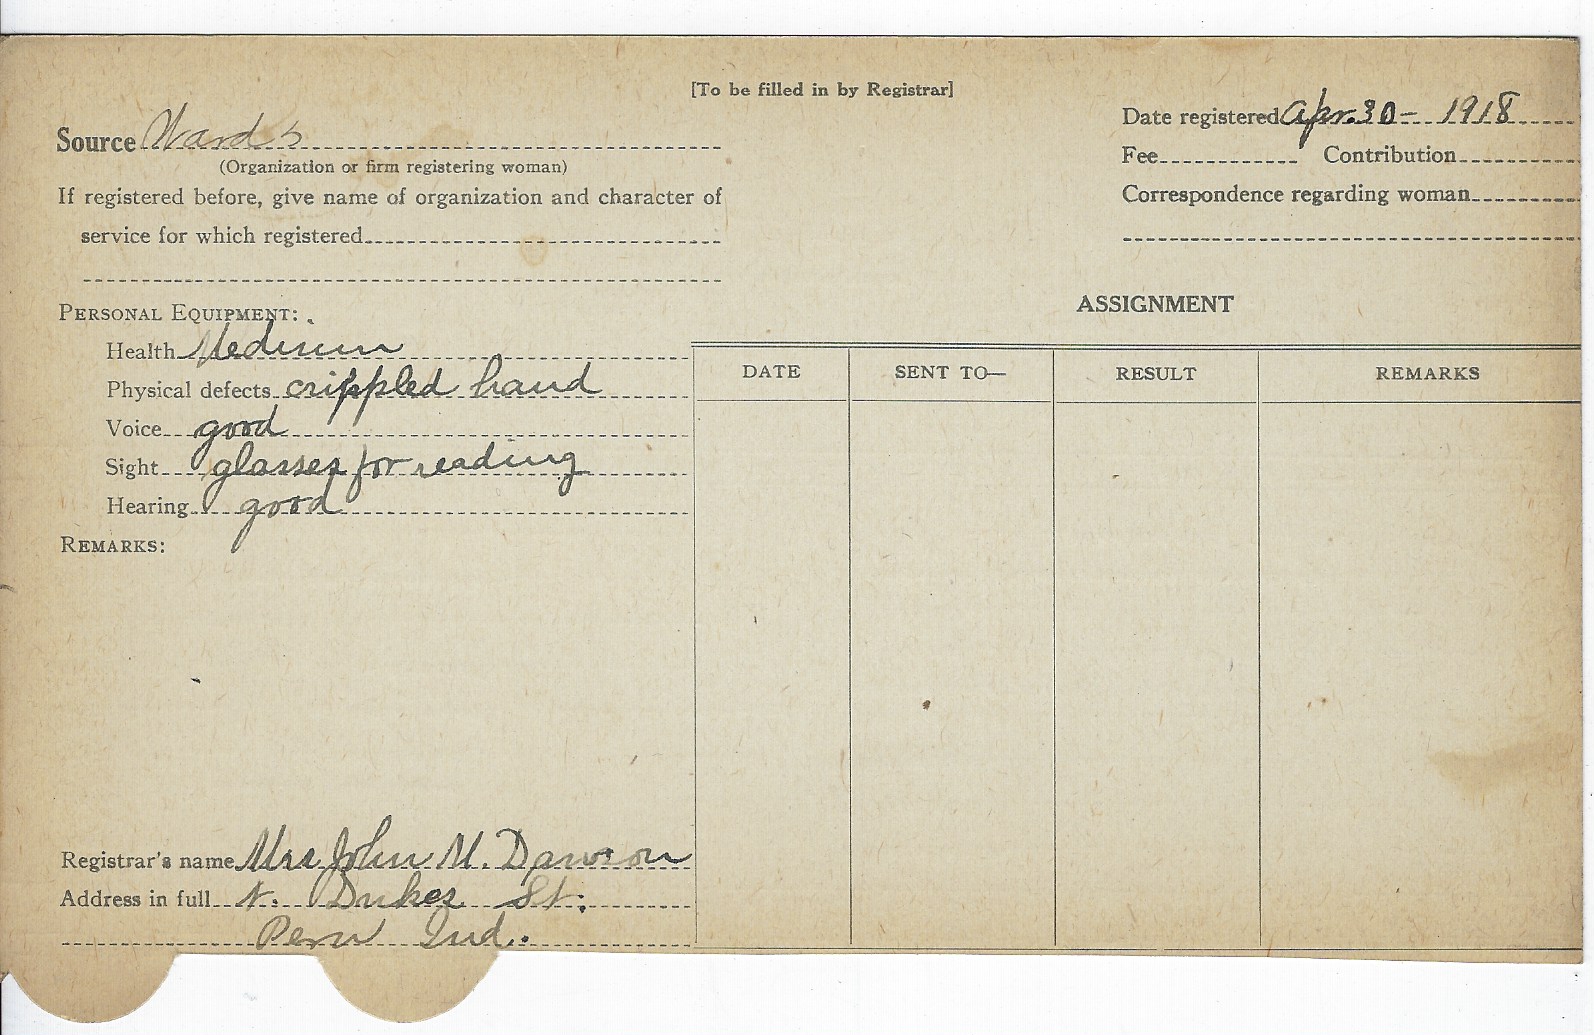 [To be filled in by Registrar]
Source Wards
(Organization or firm registering woman)
If registered before, give name of organization and character of
service for which registered
Date registered Apr. 30 - 1918
Fee Contribution
Correspondence regarding woman
PERSONAL EQUIPMENT:
Health Medium
Physical defects crippled hand
Voice good
Sight glasses for reading
Hearing good
REMARKS:
ASSIGNMENT
DATE SENT TO— RESULT REMARKS
Registrar's name Mrs John M. Dawson
Address in full N. Dukes St.
Peru Ind.